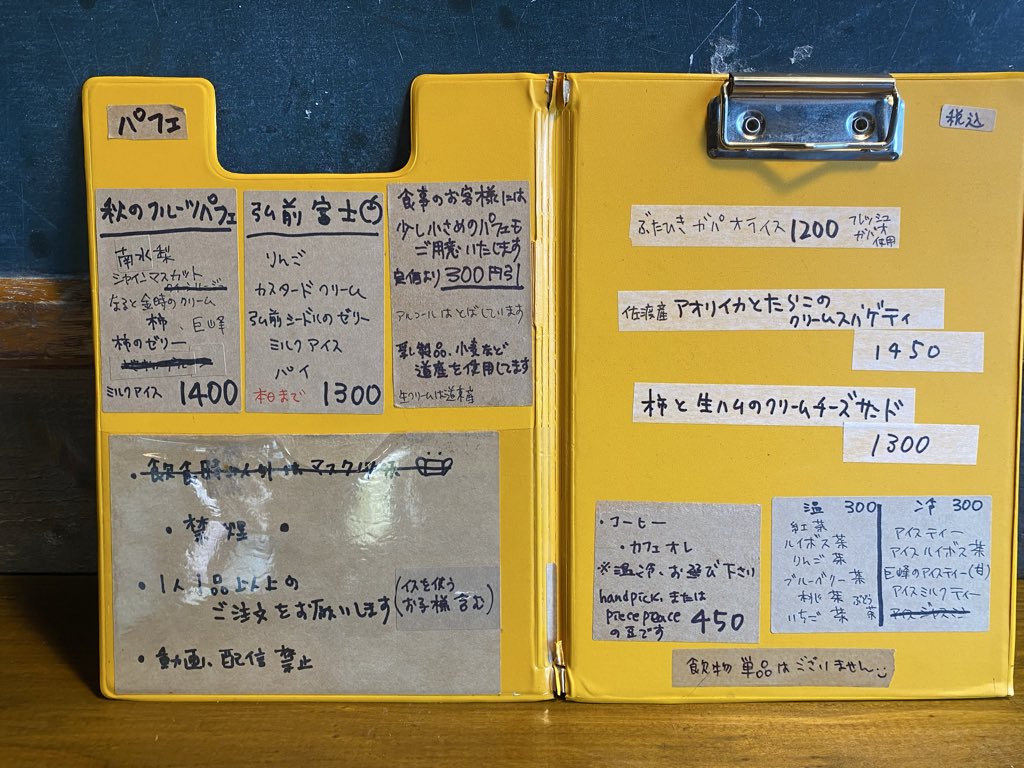 パフェ
秋のフルーツパフェ
南水梨
シャインマスカット
なると金時のクリーム
柿、巨峰
柿のゼリー
ミルクアイス 1400
弘前富士
りんご
カスタードクリーム
弘前シードルのゼリー
ミルクアイス
パイ
本日まで 1300
食事のお客様には
少し小さめのパフェも
ご用意いたします
定価より 300円引
アルコールはとばしています
乳製品、小麦など
道産を使用してます
生クリームは道産
・飲食時以外はマスク
・禁煙・
・1人1品以上の
ご注文をお願いします
(イスを使う
お子様含む)
・動画、配信禁止
税込
ぶたひきガパオライス 1200
フレッシュ
ガパオ
使用
佐渡産 アオリイカとたらこの
クリームスパゲティ
1450
柿と生ハムのクリームチーズサンド
1300
・コーヒー
・カフェオレ
※温冷、お選び下さい
handpick、または
piece peace
の豆です 450
温 300
紅茶
ルイボス茶
りんご茶
ブルーベリー茶
桃茶 ぶどう茶
いちご茶
冷 300
アイスティー
アイスルイボス茶
巨峰のアイスティー(甘)
アイスミルクティー
アイスジャスミン
飲物単品はございません